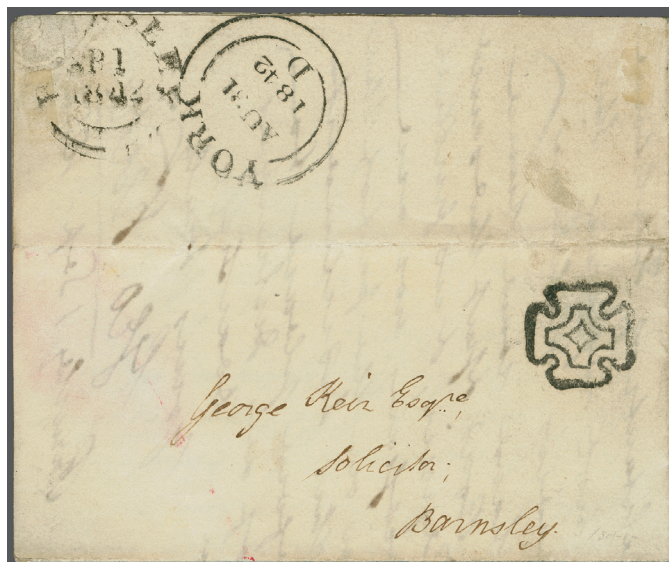 SP 1
1842
YORK
AU 31
1842
D
George Keir Esqre,
Solicitor;
Barnsley.